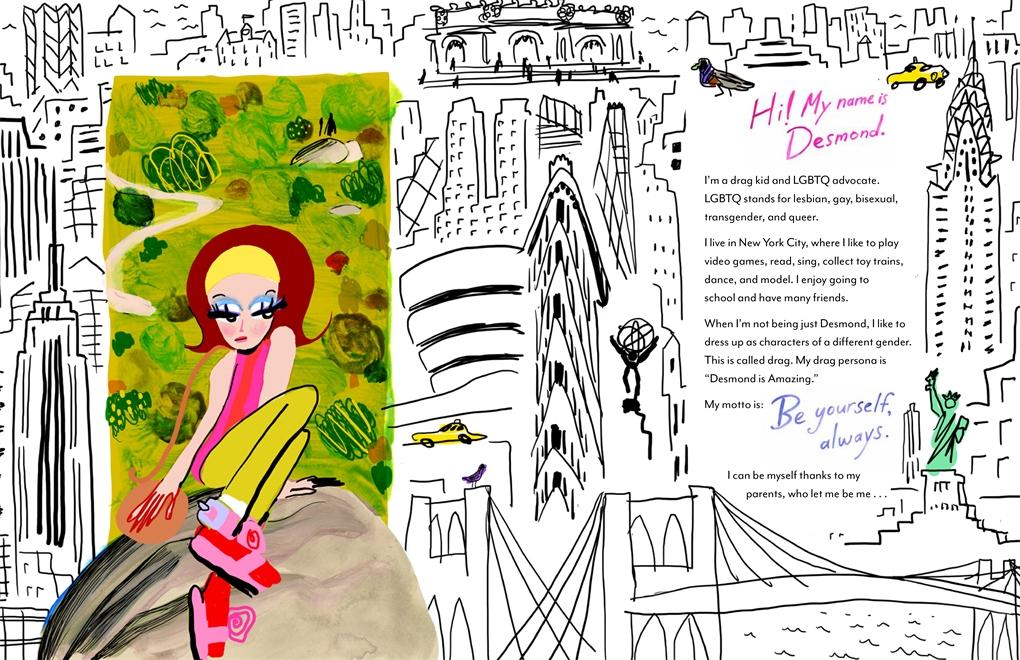 Hi! My name is
Desmond.
I'm a drag kid and LGBTQ advocate.
LGBTQ stands for lesbian, gay, bisexual,
transgender, and queer.
I live in New York City, where I like to play
video games, read, sing, collect toy trains,
dance, and model. I enjoy going to
school and have many friends.
When I'm not being just Desmond, I like to
dress up as characters of a different gender.
This is called drag. My drag persona is
“Desmond is Amazing.”
My motto is: Be yourself,
always.
I can be myself thanks to my
parents, who let me be me . . .